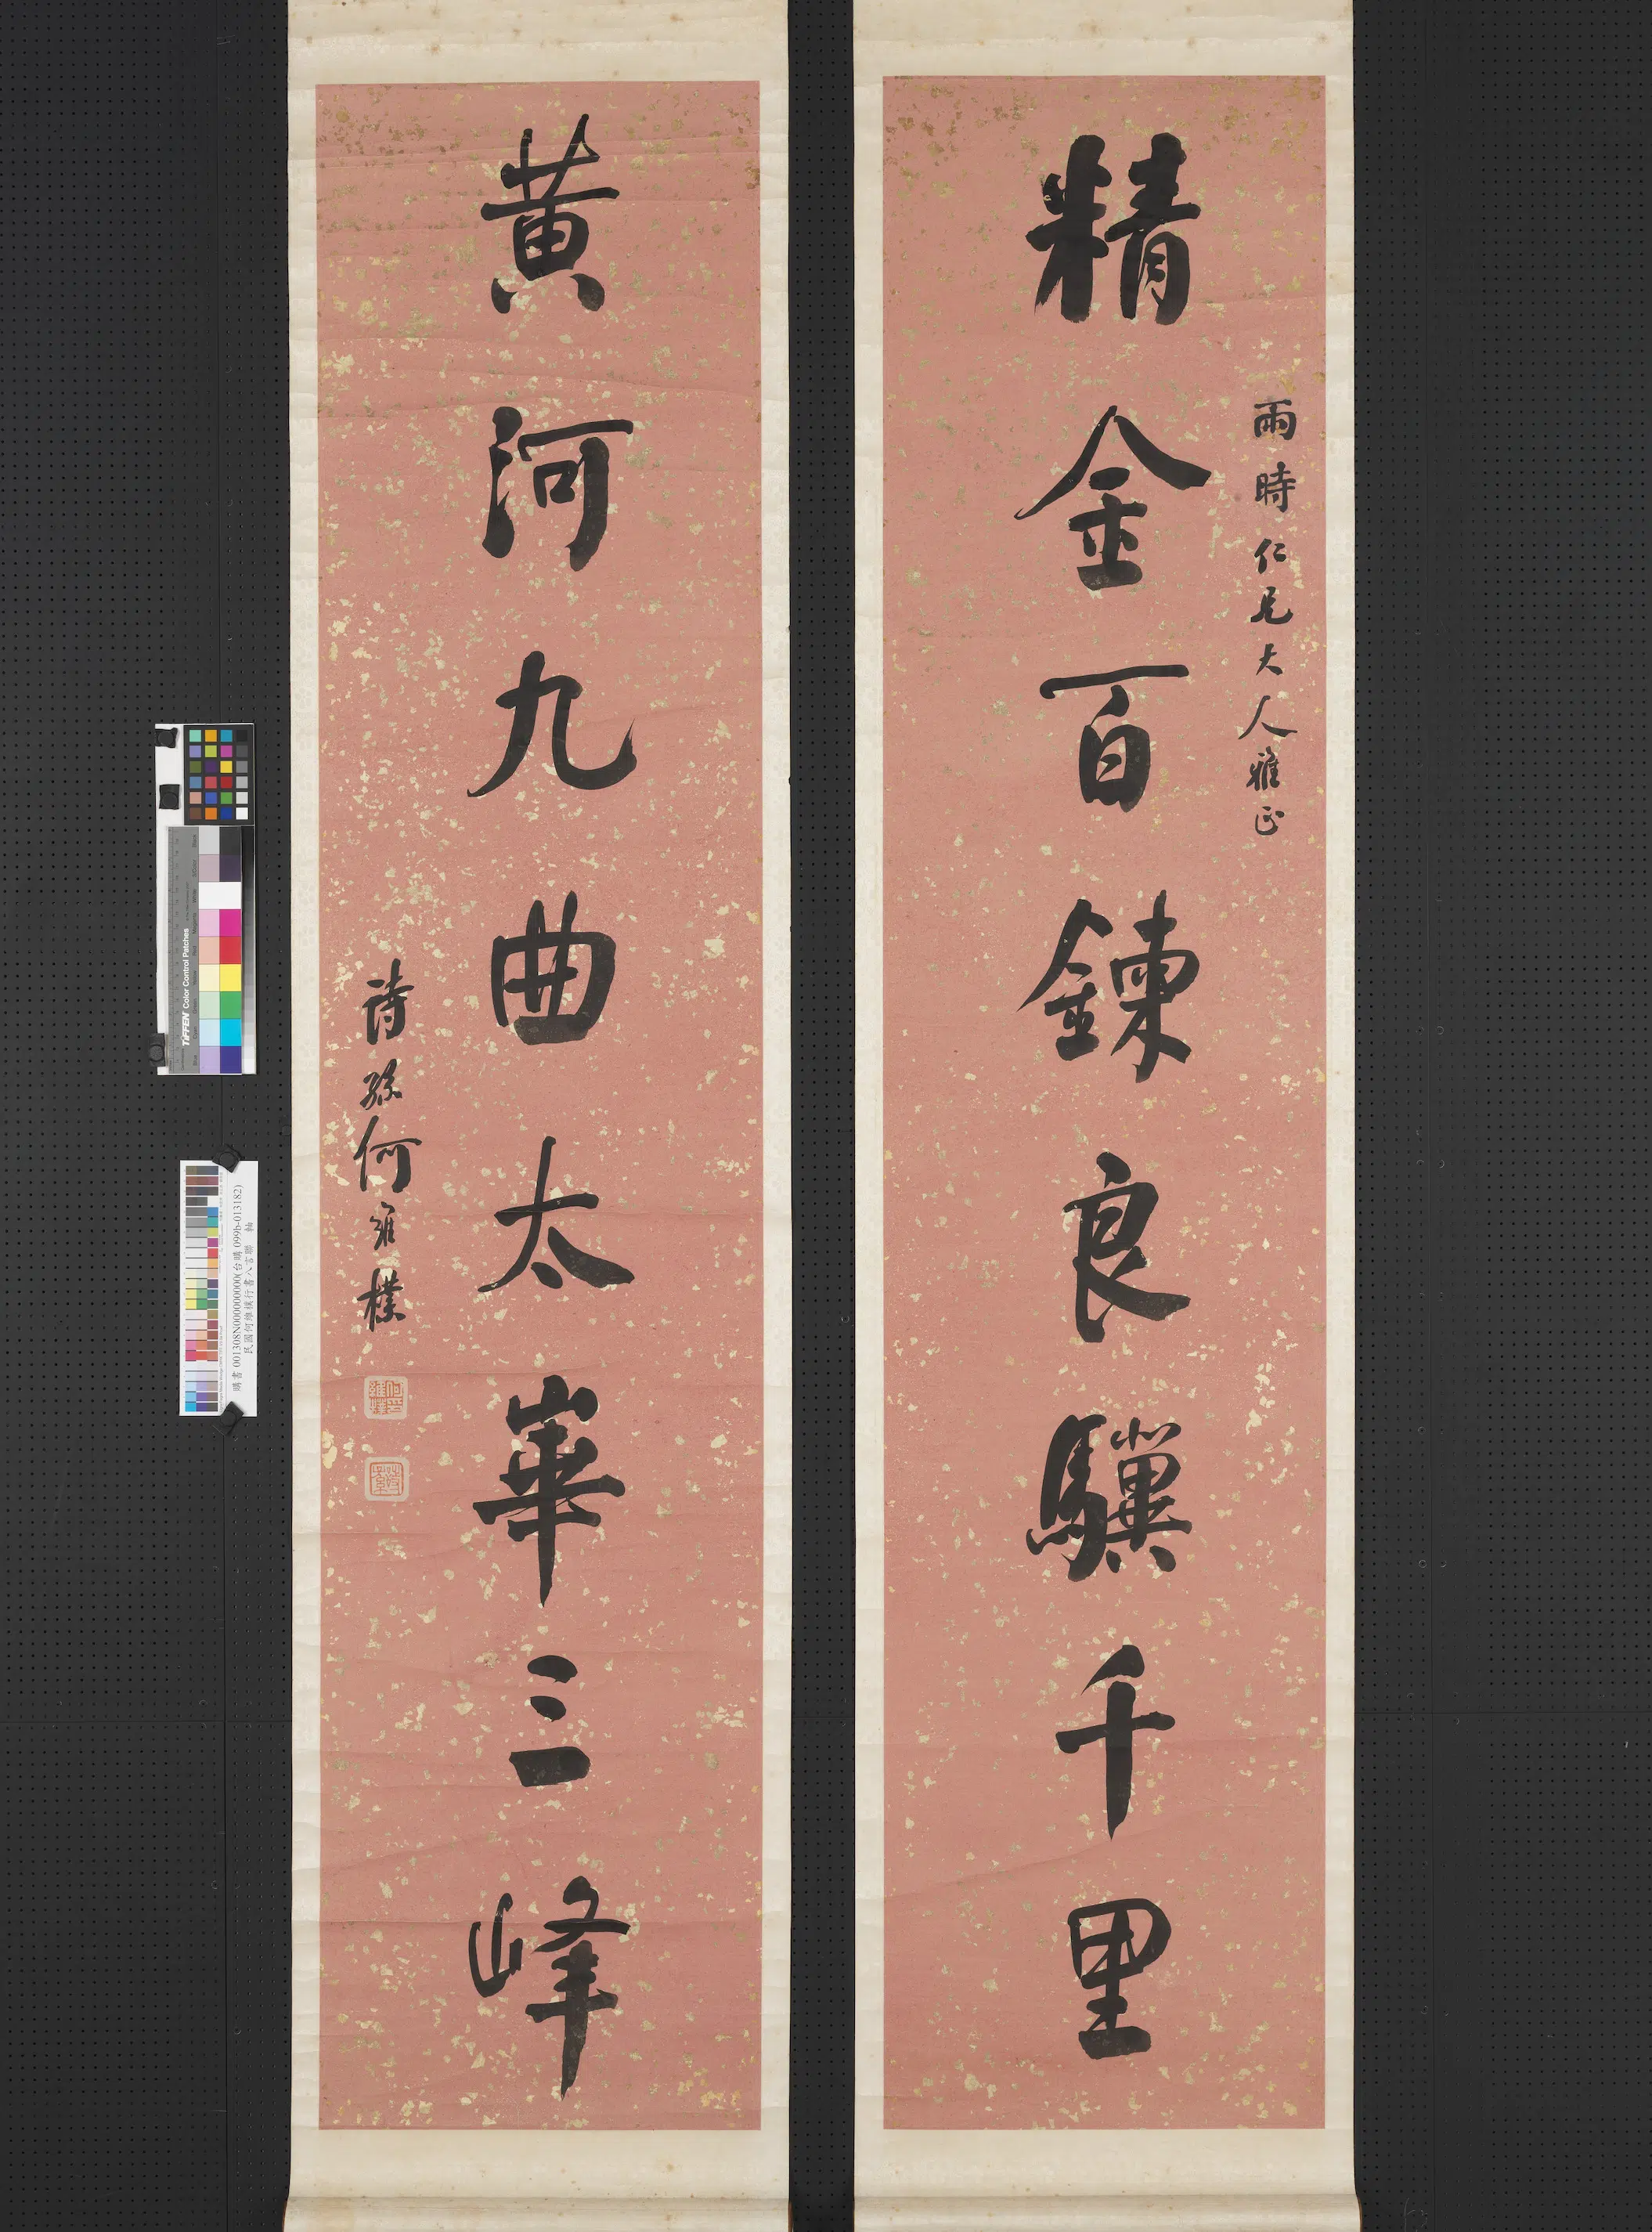 精金百鍊良驥千里
雨時仁兄大人雅正
黃河九曲太華三峰
詩孫何維樸
何維樸
TIFFEN Color Control Patches
購書 001308N000000000(台購 099b-013182)
民國何維樸行書八言聯 軸